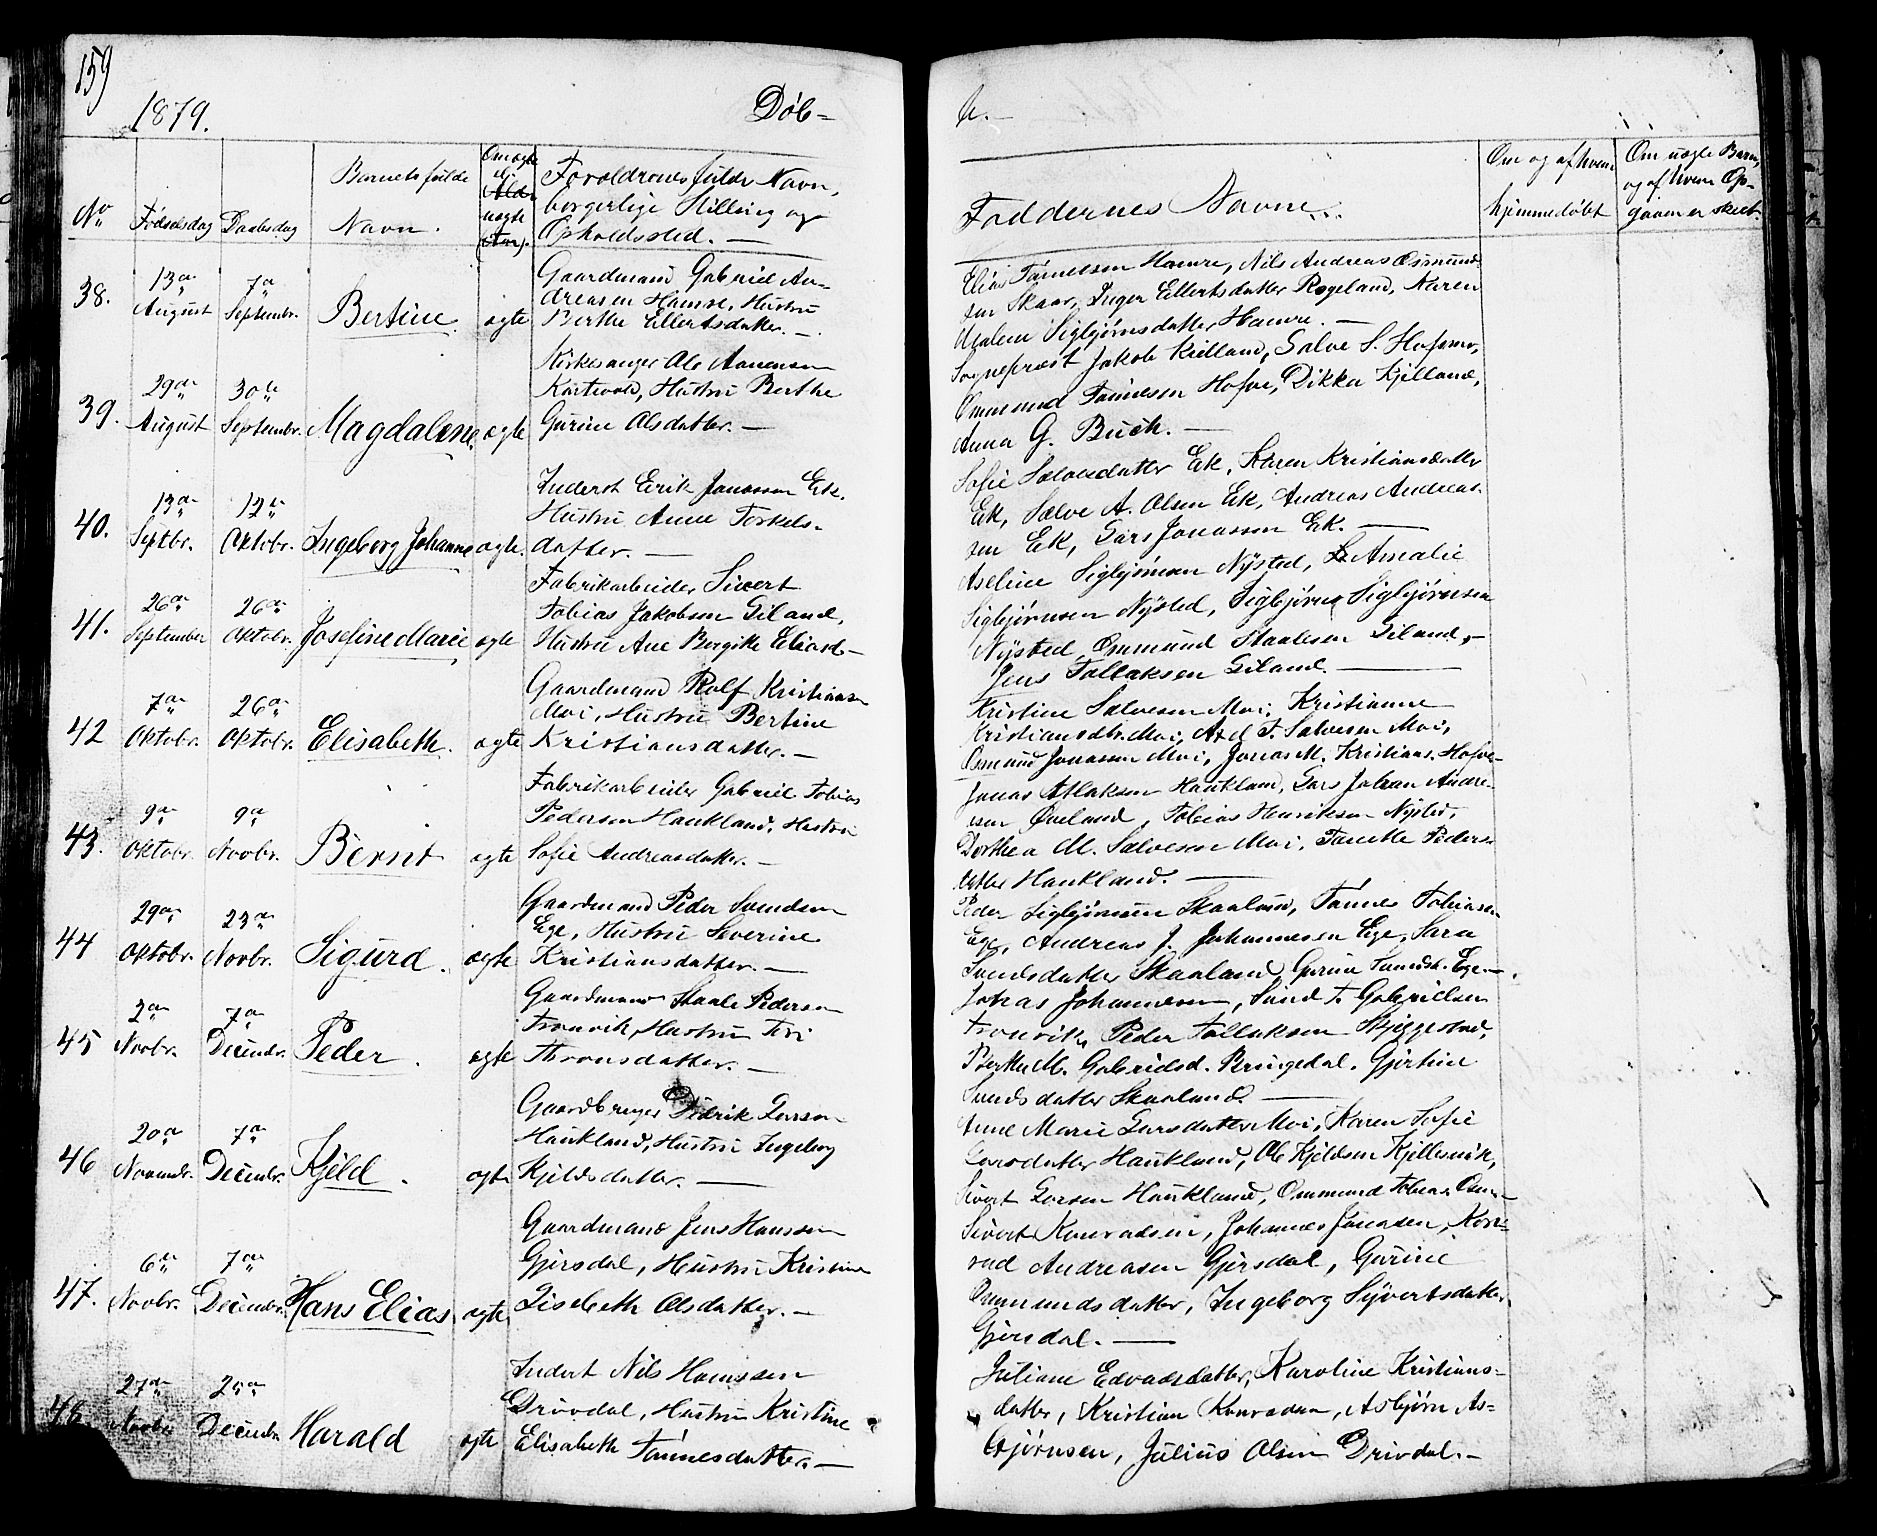 159
1879.
Døb-
te.
No
Fødselsdag
Daabsdag
Barnets fulde
Navn.
Om ægte
ell.
uægte
Forældrenes fulde Navn,
borgerlige Stilling og
Opholdssted. —
Faddernes Navne.
Om og af hvem
hjemmedøbt
Om uægte Barn,
og af hvem Op-
gaven er skeet.
38.
13de August
7de Septembr.
Bertine.
ægte
Gaardmand Gabriel An-
dreasen Hamre, Hustru
Berthe Ellertsdatter. —
Elias Tønnesen Hamre, Nils Andreas Osmund-
sen Skaar, Inger Ellertsdatter Rogeland, Karen
Malene Sigbjørnsdatter Hamre. —
39.
29de August
30te Septembr.
Magdalene.
ægte
Kirkesanger Ole Aanensen
Hustru Berthe
Gurine Olsdatter. —
Sogneprest Jakob Kielland, Salve S. Hofsmo,
Ommund Tønnesen Hofve, Dikka Kjelland,
Anna G. Buch. —
40.
13de Septbr.
12te Oktobr.
Ingeborg Johanne
ægte.
Inderst Eerik Jonassen Eek.
Hustru Anne Torkels-
datter. —
Sofie Salvesdatter Eek, Karen Kristiansdatter
Eek, Salve A. Olsen Eek, Andreas Andreas-
sen Eek, Lars Jonassen Eek. —
41.
26de September
26de Oktobr.
Josefine Marie
ægte
Fabrikarbeider Sivert
Tobias Jakobsen Eiland,
Hustru Ane Bergitte Eliasd. —
Aseline Sigbjørnsen Nysted, Amalie
Sigbjørnsen Nysted, Sigbjørn Sigbjørnsen
Nysted, Ommund Staalesen Eiland, —
Jens Tollaksen Eiland. —
42
7de Oktobr.
26de Oktobr.
Elisabeth.
ægte
Gaardmand Rolf Kristiansen
Moi, Hustru Bertine
Kristiansdatter. —
Kristine Salvesen Moi, Kristianne
Kristiansdtr. Moi, Axel T. Salvesen Moi,
Osmund Jonassen Moi, Jonas M. Kristians. Hofve —
43.
9de Oktobr.
9de Novbr.
Bernt
ægte
Fabrikarbeider Gabriel Tobias
Pedersen Haukland, Hustru
Sofie Andreasdatter. —
Jonas Atlaksen Haukland, Lars Johan Andre-
asen Øveland, Tobias Henriksen Nysted,
Dorthea M. Salvesen Moi, Tanette Peders-
datter Haukland. —
44
29de Oktobr.
23de Novbr.
Sigurd.
ægte
Gaardmand Peder Svendsen
Ege, Hustru Severine
Kristiansdatter. —
Peder Sigbjørnsen Skaaland, Tønnes Tobiasen
Ege, Andreas J. Johannesen Ege, Sara
Svendsdatter Skaaland, Gurine Svendsd. Ege —.
45
2den Novbr.
7de Decembr.
Peder.
ægte
Gaardmand Staale Pedersen
Tronvik, Hustru Siri
Thronsdatter. —
Tobias Johannesen, Svend T. Gabrielsen
Tronvik, Peder Tollaksen Skjeggestad,
Berthe M. Gabrielsd. Bringedal, Gjertine
Svendsdatter Skaaland. —
46
20de Novembr.
7de Decembr.
Kjeld.
ægte
Gaardbruger Didrik Larsen
Haukland, Hustru Ingeborg
Kjeldsdatter. —
Anne Marie Larsdatter Moi, Karen Sofie
Larsdatter Haukland, Ole Kjeldsen Kjellesvik,
Sivert Larsen Haukland, Ommund Tobias Osm. —
47.
6te Novbr.
7de Decembr.
Hans Elias.
ægte
Gaardmand Jens Hanssen
Gjersdal, Hustru Kristine
Lisebeth Olsdatter. —
Sivert Konradsen, Johannes Jonassen, Kon-
rad Andreasen Gjersdal, Gurine
Ommundsdatter, Ingeborg Syvertsdatter
Gjersdal. —
27de Novbr.
25de Decembr.
Harald
ægte
Inderst Nils Hanssen
Drivdal, Hustru Kristine
Elisabeth Tønnesdatter. —
Juliane Edvardsdatter, Karoline Kristians-
datter, Kristian Konradsen, Asbjørn As-
bjørnsen, Julius Olsen Drivdal. —